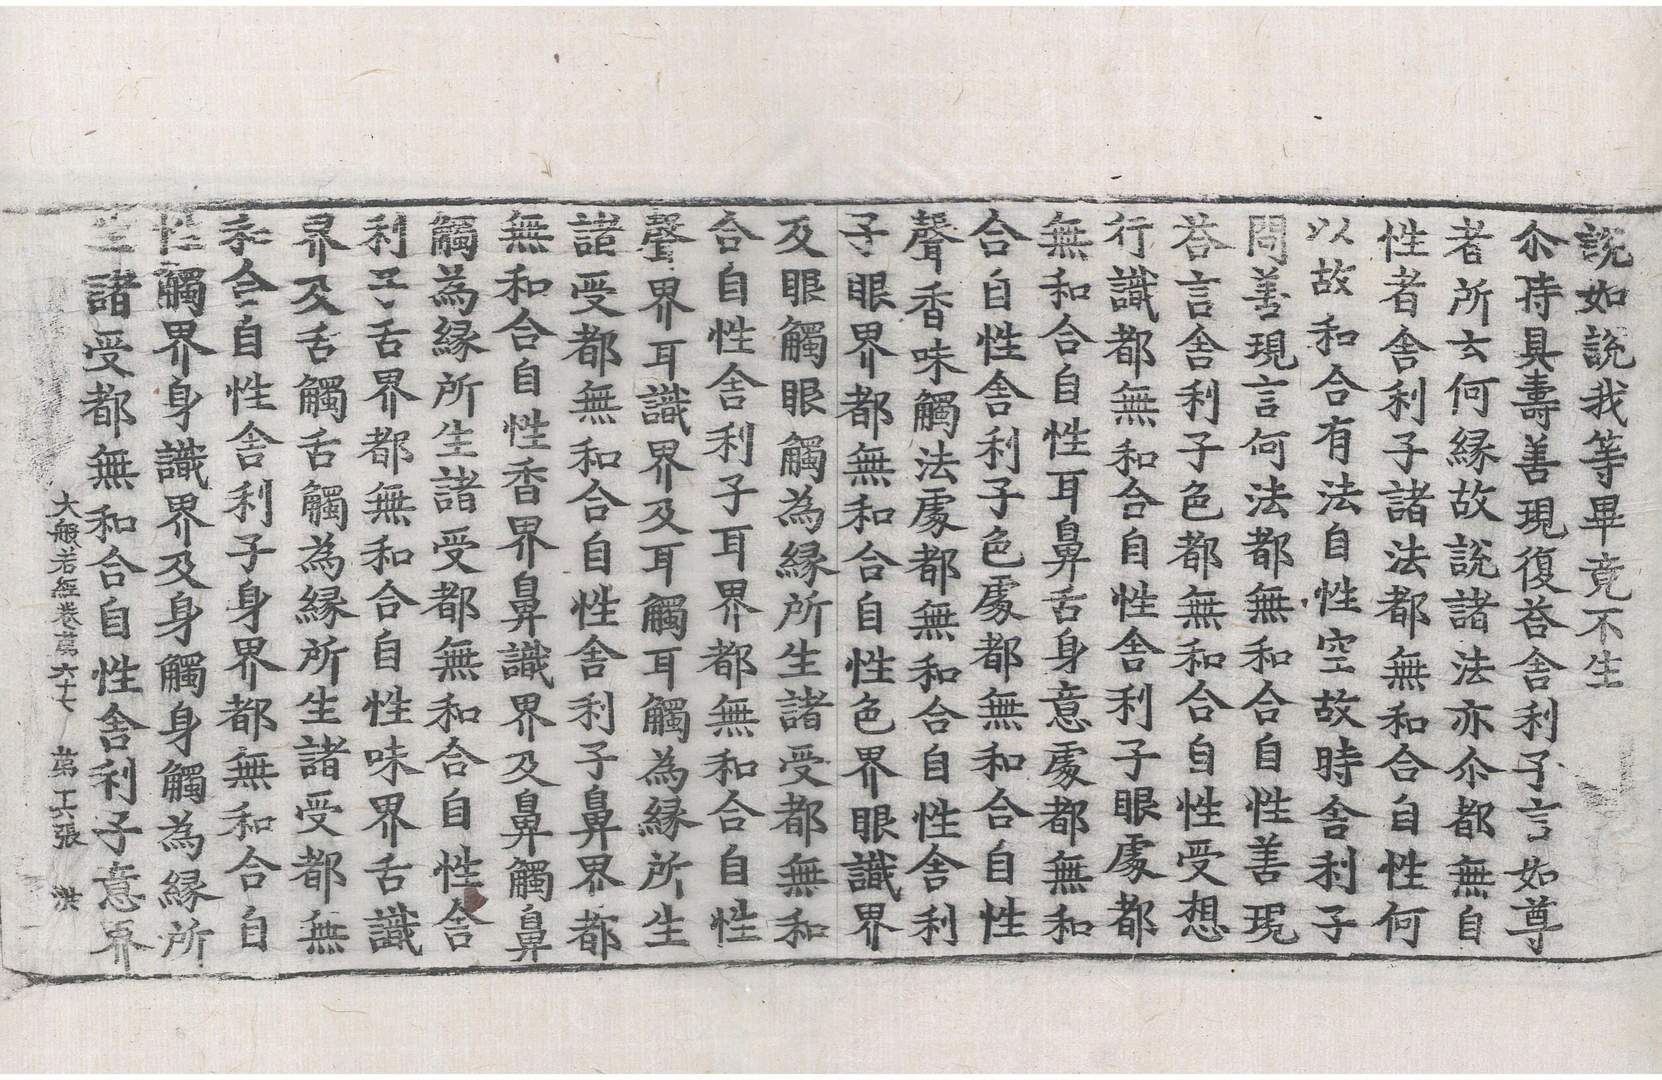 說如說我等畢竟不生
尒時具壽善現復荅舍利子言如尊
者所云何緣故說諸法亦尒都無自
性者舍利子諸法都無和合自性何
以故和合有法自性空故時舍利子
問善現言何法都無和合自性善現
荅言舍利子色都無和合自性受想
行識都無和合自性舍利子眼處都
無和合自性耳鼻舌身意處都無和
合自性舍利子色處都無和合自性
聲香味觸法處都無和合自性舍利
子眼界都無和合自性色界眼識界
及眼觸眼觸為緣所生諸受都無和
合自性舍利子耳界都無和合自性
聲界耳識界及耳觸耳觸為緣所生
諸受都無和合自性舍利子鼻界都
無和合自性香界鼻識界及鼻觸鼻
觸為緣所生諸受都無和合自性舍
利子舌界都無和合自性味界舌識
界及舌觸舌觸為緣所生諸受都無
和合自性舍利子身界都無和合自
性觸界身識界及身觸身觸為緣所
生諸受都無和合自性舍利子意界
大般若經卷第六十七 第 張 洪